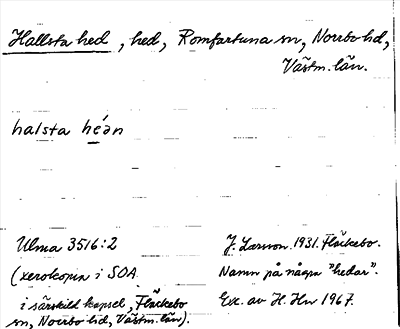 Hallsta hed, hed, Romfartuna sn, Norrbo hd,
Västm. län.
halsta héan
Ulma 3516:2
(xerokopia i SOA
i särskild kapsel, Fläckebo
sn, Norrbo hd, Västm. län).
J. Larsson. 1931. Fläckebo.
Namn på några "hedar".
Exc. av H. Hn 1967.